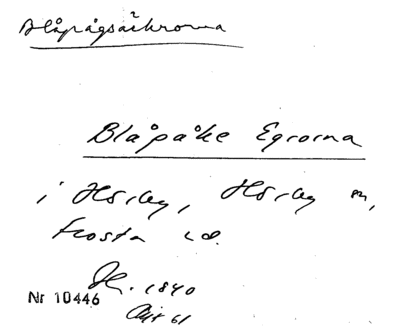 Blåpågsåkrorna
Blåpåke Egrorna
i Hörby, Hörby sn,
Frosta hd.
H. 1840
Nr 10446
Akt 61